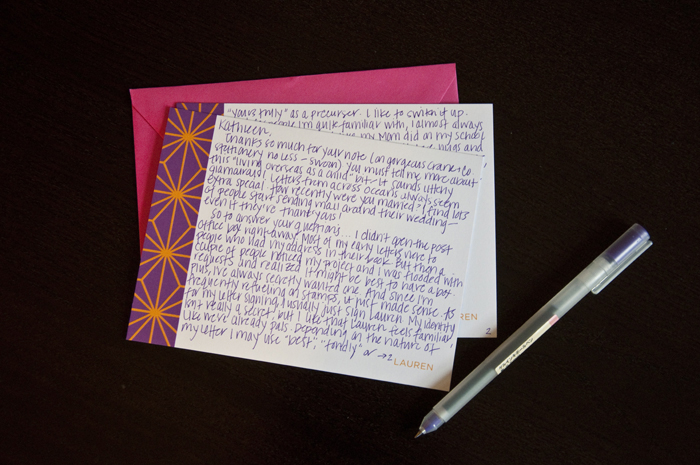 "yours truly" as a precurser. I like to switch it up.
people I'm quite familiar with, I almost always
my Mom did on my school
and
Kathleen,
Thanks so much for your note (on gorgeous Crane & Co
stationery no less - swoon). You must tell me more about
this "living overseas as a child" bit - it sounds utterly
glamorous! Letters from across oceans always seem
extra special. How recently were you married? I find lots
of people start sending mail around their wedding -
even if they're thank yous!
So to answer your questions... I didn't open the post
office box right away. Most of my early letters were to
people who had my address in their book. But then a
couple of people noticed my project and I was flooded with
requests and realized it might be best to have a box.
Plus, I've always secretly wanted one. And since I'm
frequently refueling on stamps, it just made sense. As
for my letter signing, I usually just sign Lauren. My identity
isn't really a secret, but I like that Lauren feels familiar,
like we're already pals. Depending on the nature of
my letter I may use "best", "fondly" or → 2
LAUREN
REN
2